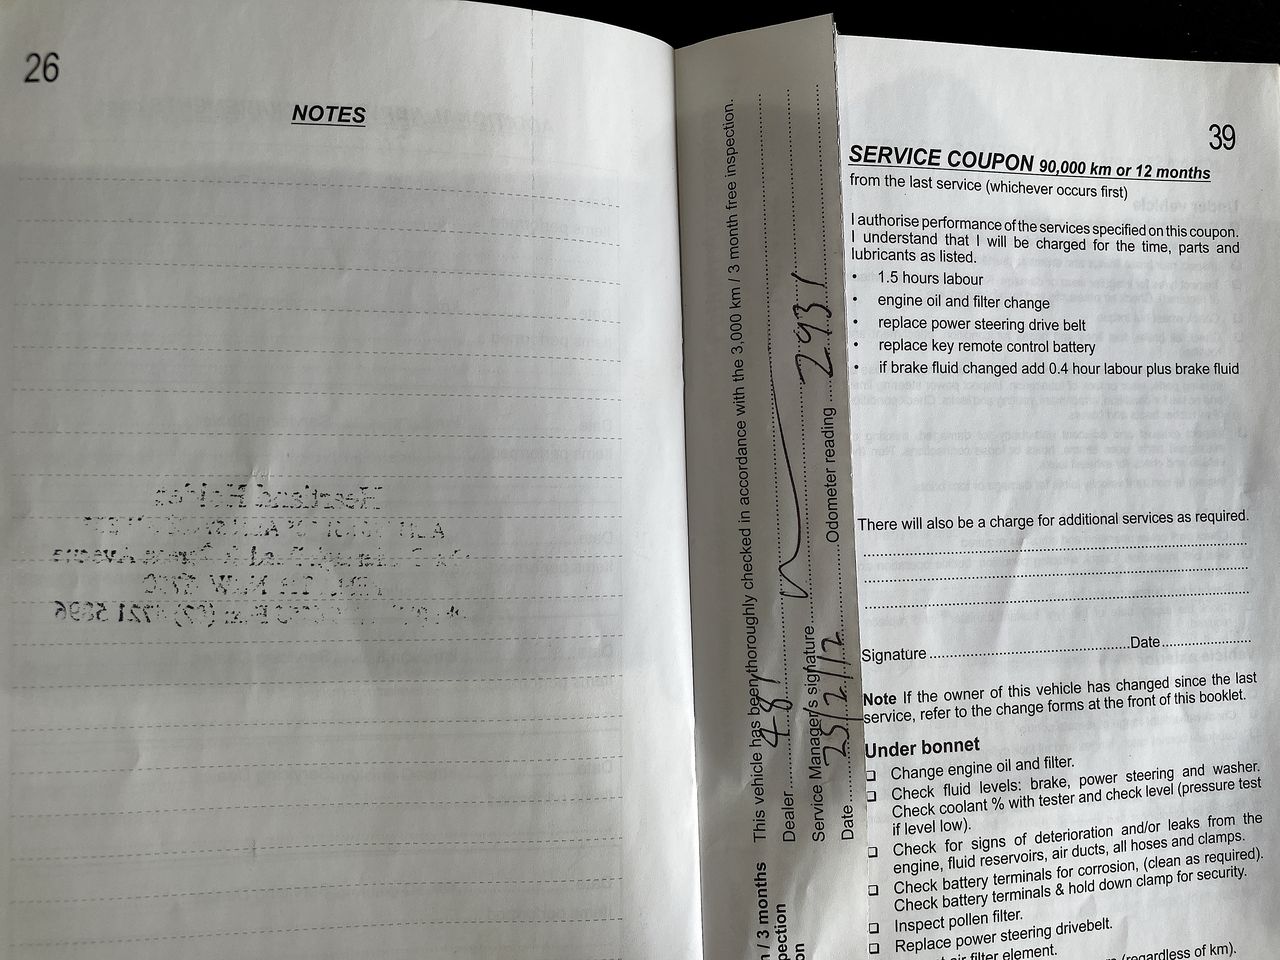 26
NOTES
This vehicle has been thoroughly checked in accordance with the 3,000 km / 3 month free inspection.
Dealer 487
Service Manager's signature
Date 23/2/12 Odometer reading 2931
/ 3 months
pection
on
39
SERVICE COUPON 90,000 km or 12 months
from the last service (whichever occurs first)
I authorise performance of the services specified on this coupon.
I understand that I will be charged for the time, parts and
lubricants as listed.
• 1.5 hours labour
• engine oil and filter change
• replace power steering drive belt
• replace key remote control battery
• if brake fluid changed add 0.4 hour labour plus brake fluid
There will also be a charge for additional services as required.
Signature Date
Note If the owner of this vehicle has changed since the last
service, refer to the change forms at the front of this booklet.
Under bonnet
❑ Change engine oil and filter.
❑ Check fluid levels: brake, power steering and washer.
Check coolant % with tester and check level (pressure test
if level low).
❑ Check for signs of deterioration and/or leaks from the
engine, fluid reservoirs, air ducts, all hoses and clamps.
❑ Check battery terminals for corrosion, (clean as required).
Check battery terminals & hold down clamp for security.
❑ Inspect pollen filter.
❑ Replace power steering drivebelt.
air filter element.
(regardless of km).